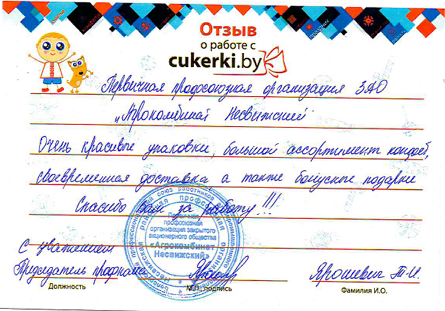 Отзыв
о работе с
cukerki.by
Первичная профсоюзная организация ЗАО
"Агрокомбинат Несвижский"
Очень красивые упаковки, большой ассортимент конфет,
своевременная доставка а также бонусные подарки
Спасибо Вам за работу!!!
организация закрытого
акционерного общества
«Агрокомбинат
Несвижский»
С уважением
Председатель профкома Ярошевич Т.И.
Должность М.П. подпись Фамилия И.О.